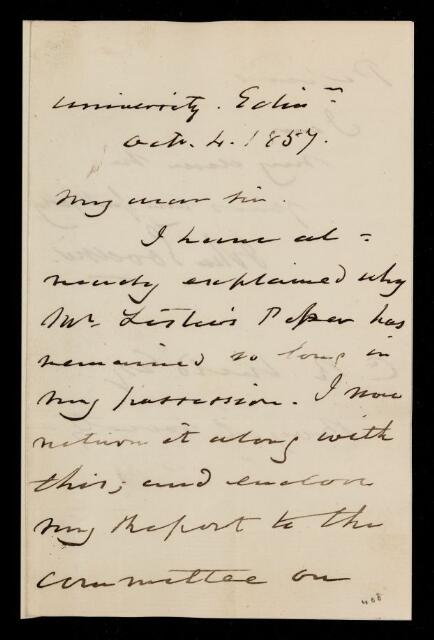 University. Edinr
Octr. 4. 1857.
My dear Sir.
I have al=
ready explained why
Mr. Lister's Paper has
remained so long in
my possession. I now
return it along with
this; and enclose
my Report to the
Committee on
408